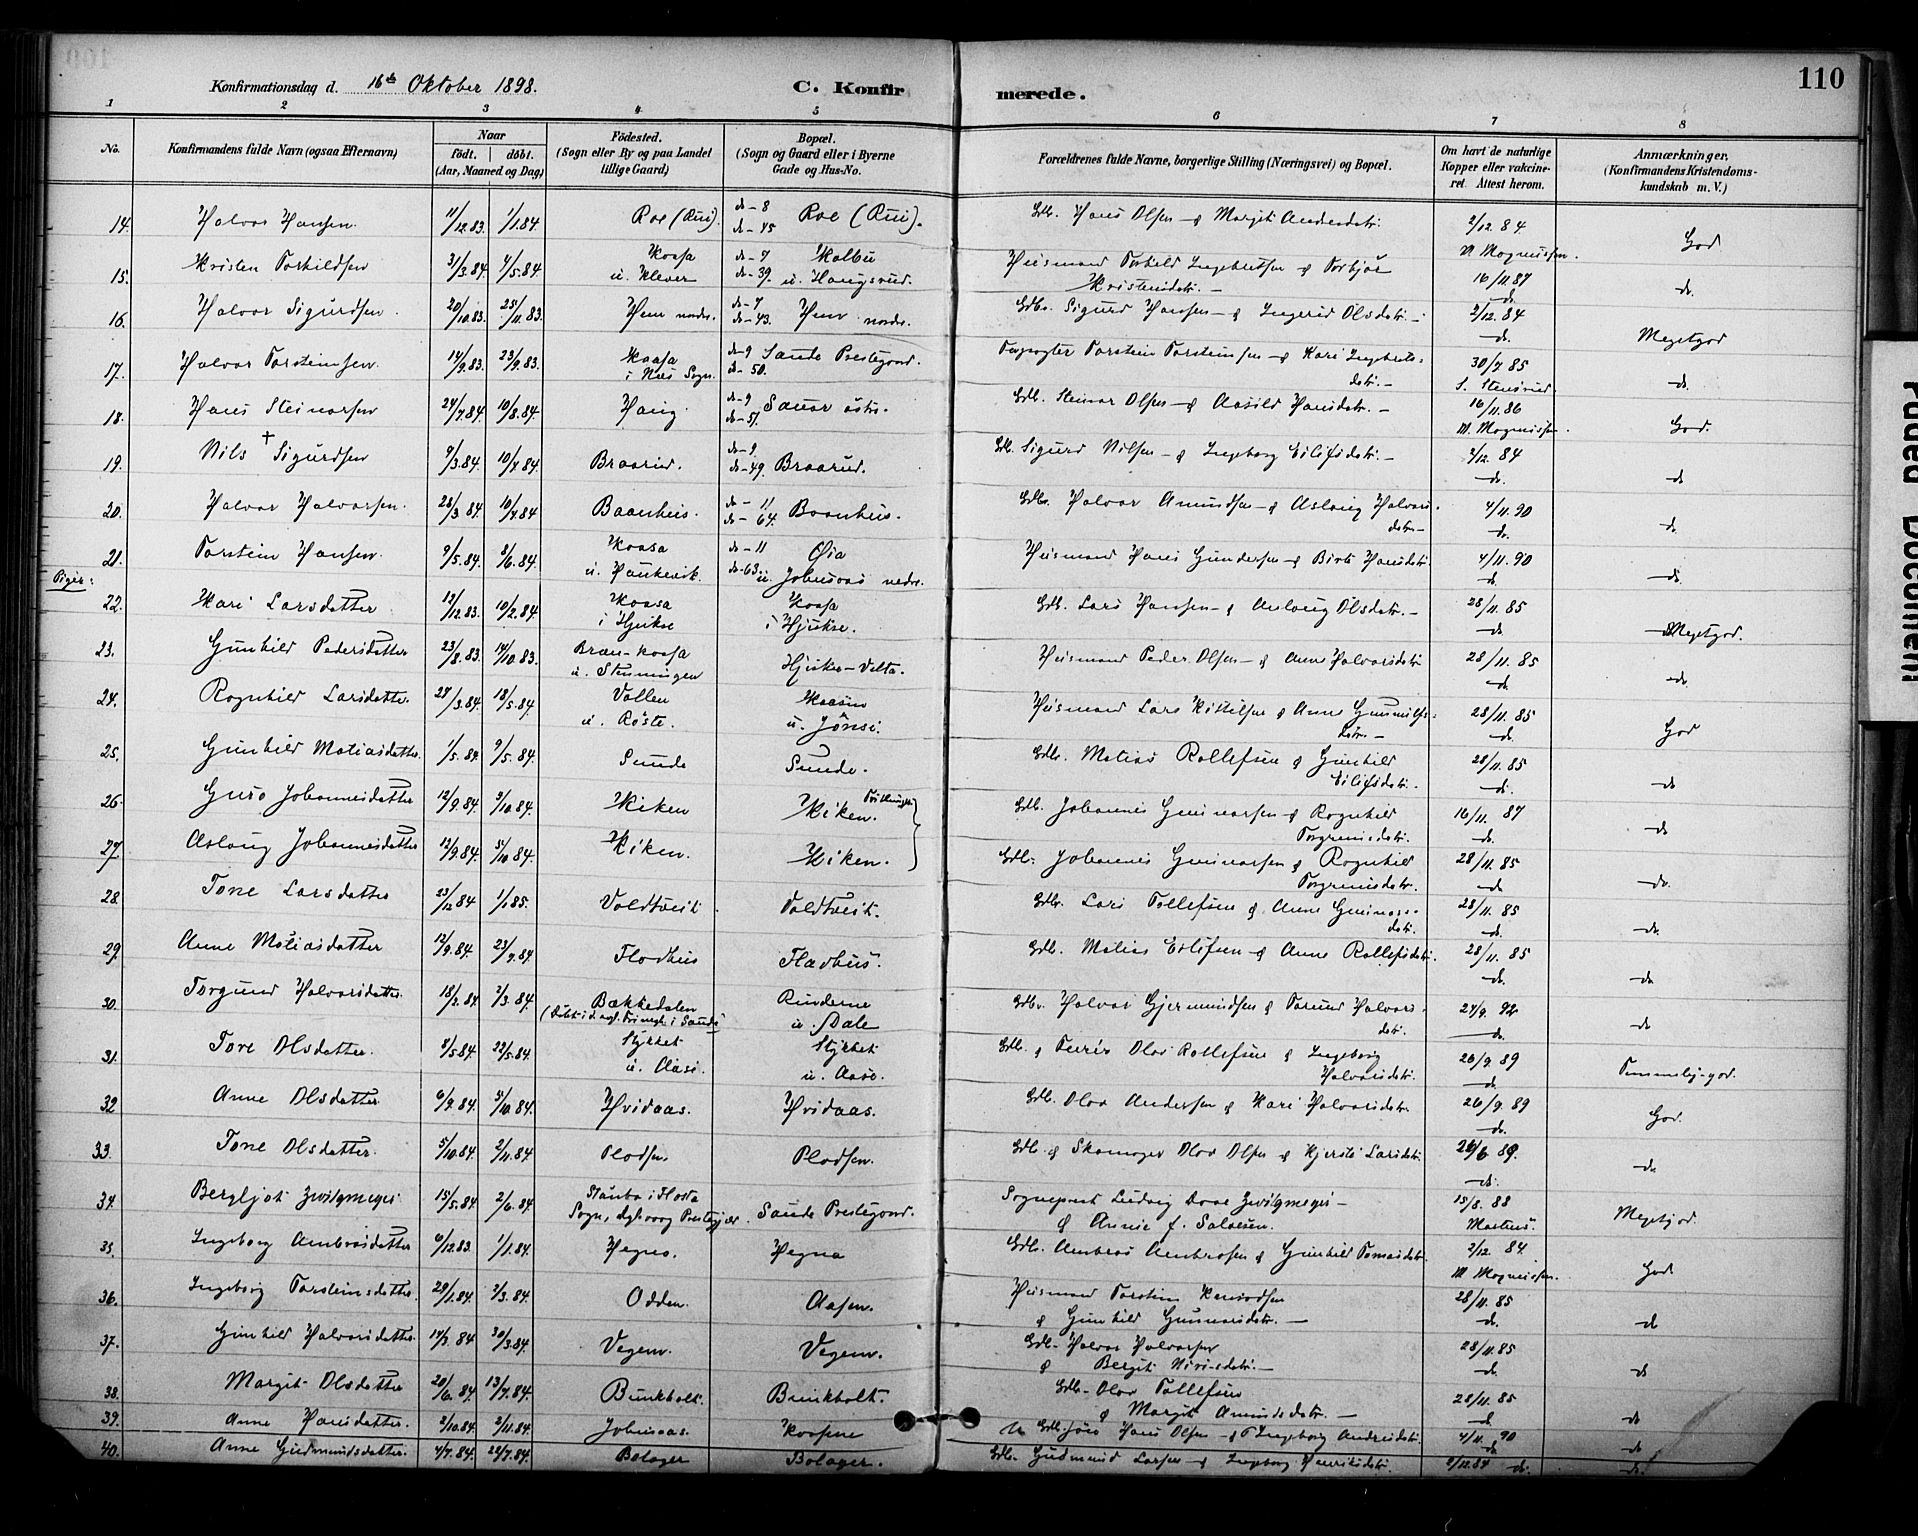 110
Konfirmationsdag d. 16de Oktober 1898.
C. Konfirmerede.
1 2 3 4 5 6 7 8
No.
Konfirmandens fulde Navn (ogsaa Efternavn)
Naar
födt. döbt.
(Aar, Maaned og Dag)
Födested.
(Sogn eller By og paa Landet
tillige Gaard)
Bopæl.
(Sogn og Gaard eller i Byerne
Gade og Hus-No.
Forældrenes fulde Navne, borgerlige Stilling (Næringsvei) og Bopæl.
Om havt de naturlige
Kopper eller vakcine-
ret. Attest herom.
Anmærkninger.
(Konfirmandens Kristendoms-
kundskab m. V.)
14. Halvor Hansen 11/12.83. 1/1.84. Roe (Rui). do-8 do-45 Roe (Rui). Gdb. Hans Olsen & Margit Andersdtr. 2/12.84 M. Magnussen. God
15. Kristen Torkildsen 31/3.84 4/5.84 Kaasa u. Klever do-7 do-39. Kolbu u. Haugsrud. Husmand Torkild Ingebretsen & Torbjør Kristensdtr. 16/11.87 do. do.
16. Halvor Sigurdsen. 20/10.83. 25/11.83. Hem nordr. do-7 do-43. Hem nordr. Gdbr. Sigurd Hansen & Ingerid Olsdatr. 2/12.84 do. Megetgod
17. Halvor Torsteinsen 14/9.83. 23/9.83. Kaasa i Næs Sogn. do-9 do-50. Saude Prestegaard. Forpagter Torstein Torsteinsen & Kari Ingebretsdatr. 30/7 85 S. Stensrud. do.
18. Hans Steinarsen 24/7.84 10/8.84. Haug. do-9 do-51. Sauar östr. Gdb. Steinar Olsen & Aasild Hansdatr. 16/11.86 M. Magnussen. God
19. Nils + Sigurdsen 9/3.84. 10/4.84. Braarud. do-9. do-49. Braarud. Gdb. Sigurd Nilsen & Ingeborg Eilifsdatr. 4/12.84 do. do
20. Halvor Halvorsen. 28/3.84 10/4.84 Baanhus. do-11 do-64. Baanhus. Gdbr. Halvor Amundsen & Aslaug Halvorsdatr. 4/11.90 do. do.
21. Torstein Hansen. 9/5.84. 8/6.84. Kaasa u. Haukevik. do-11 do-63. Øia u. Johnsaas nedre. Husmand Hans Gundersen & Birte Hansdatr. 4/11.90 do. do.
Piger:
22. Kari Larsdatter 12/12.83. 10/2.84. Kaasa i Hjukse Kaasa i Hjukse. Gdb. Lars Hansen & Aslaug Olsdatr. 28/11.85 do Megetgod.
23. Gunhild Pedersdatter 23/8.83. 14/10.83. Bræn-kaasa u. Stenningen Hjukse-Velta. Husmand Peder Olsen & Anne Halvorsdatr. 28/11.85 do. do.
24. Ragnhild Larsdatter. 27/3.84. 18/5.84. Vollen u. Röste. Kaasin u. Jönsi. Husmand Lars Kittelsen & Anne Gunnulfsdatr. 28/11.85 do. God
25. Gunhild Matiasdatter. 1/5.84. 9/5.84. Sunde Sunde. Gdb. Matias Rollefsen & Gunhild Eilifsdatr. 28/11.85 do. do
26. Guro Johannesdatter 12/9.84. 5/10.84. Kiken Kiken. Tvillinger Gdb. Johannes Gunnarsen & Ragnhild Torgrimsdatr. 16/11.87 do. do
27. Aslaug Johannesdatter 12/9.84. 5/10.84. Kiken. Kiken. Gdb. Johannes Gunnarsen & Ragnhild Torgrimsdatr. 28/11.85 do do.
28. Tone Larsdatter 23/12.84 1/1.85. Voldtveit. Voldtveit. Gdb. Lars Tollefsen & Anne Gunnarsdatr. 28/11.85 do. do.
29. Anne Matiasdatter 12/9.84. 23/9.84. Flodhus Fladhus. Gdb. Matias Eilifsen & Anne Rollefsdatr. 28/11.85 do. do
30. Torgund Halvorsdatter. 18/2.84 2/3.84. Bækkedalen Rinderne u. Dale Gdbr. Halvor Gjermundsen & Torund Halvorsdatr. 24/9.92 do. do
31. Tore Olsdatter. 9/5.84. 22/5.84. Stykket u. Aase. Stykket u. Aase. Gdb. & Olav Rollefsen & Ingeborg Halvorsdatr. 26/9.89 do Temmelig-god.
32 Anne Olsdatter 6/9.84. 5/10.84. Hvidaas. Hvidaas. Gdb. Olav Andersen & Kari Halvorsdatr. 26/9.89 do. God.
33. Tone Olsdatter. 5/10.84. 2/11.84. Plodsen. Plodsen. Gdb & Skomager Olav Olsen & Kjersti Larsdatr. 26/6 89. do. do
34. Bergljot Zwilgmeyer 15/5.84. 2/6.84. Staubø i Flosta Sogn, Dybvaag Prestegjæld. Saude Prestegaard. Sogneprest Ludvig Daae Zwilgmeyer & Annie J. Salvesen. 15/8.88 Martens. Megetgod.
35. Ingeborg Ambrosdatter 6/12.83. 1/1.84. Hegna. Hegna Gdb. Ambros Ambrosen & Gunhild Tomasdatr. 2/12 84 M Magnussen. God
36. Ingeborg Torsteinsdatter. 29/1.84. 2/3.84. Odden. Aasen. Husmand Torstein & Gunhild Gunnarsdatr. 28/11.85 do. do
37. Gunhild Halvorsdatter. 14/3.84 30/3.84. Vegem. Vegem. Gdb. Halvor Halvorsen & Bergit 28/11.85 do. do
38. Margit Olsdatter 20/6.84 13/7.84. Bunkholt. Bunkholt. Gdb. Olav Tollefsen & Margit Amundsdatr. 28/11.85 do. do
39. Anne Hansdatter. 2/10.84. 2/11.84. Johnsaas. Kaasene Hans Olsen & Ingeborg Andersdatr. 4/11.90 do do
40. Anne Gudmundsdatter. 4/7.84. 22/7.84. Bolager Bolager. Gdb. Gudmund Larsen & Ingeborg Henriksdatr. 2/12.84 do. do.
Paged Document